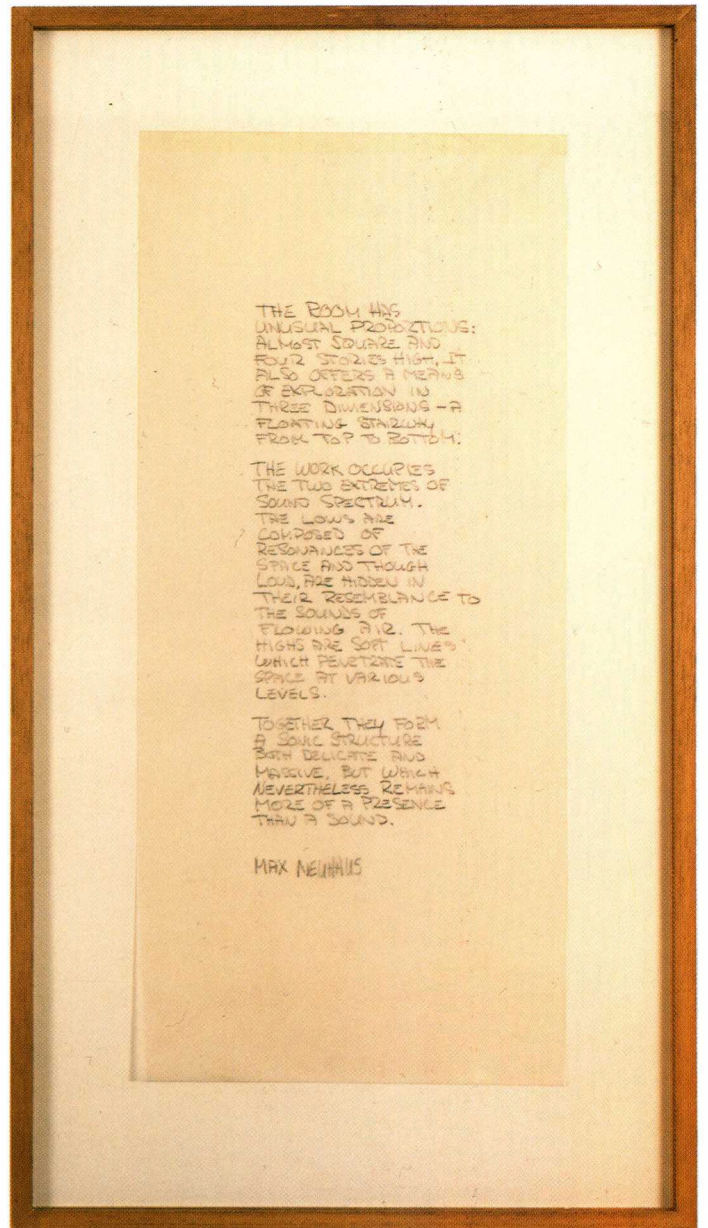 THE ROOM HAS
UNUSUAL PROPORTIONS:
ALMOST SQUARE AND
FOUR STORIES HIGH, IT
ALSO OFFERS A MEANS
OF EXPLORATION IN
THREE DIMENSIONS – A
FLOATING STAIRWAY
FROM TOP TO BOTTOM.
THE WORK OCCUPIES
THE TWO EXTREMES OF
SOUND SPECTRUM.
THE LOWS ARE
COMPOSED OF
RESONANCES OF THE
SPACE AND THOUGH
LOUD, ARE HIDDEN IN
THEIR RESEMBLANCE TO
THE SOUNDS OF
FLOWING AIR. THE
HIGHS ARE SOFT LINES
WHICH PENETRATE THE
SPACE AT VARIOUS
LEVELS.
TOGETHER THEY FORM
A SONIC STRUCTURE
BOTH DELICATE AND
MASSIVE, BUT WHICH
NEVERTHELESS REMAINS
MORE OF A PRESENCE
THAN A SOUND.
MAX NEUHAUS